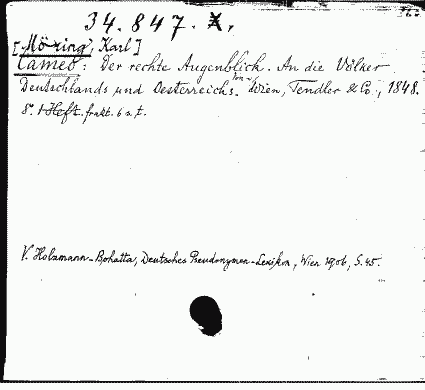 34.847. A.
[Möring, Karl]
Cameo: Der rechte Augenblick. An die Völker
Deutschlands und Oesterreichs. Von *. Wien, Tendler & Co., 1848.
8°. 1 Heft. frakt. 6 s. t.
V. Holzmann-Bohatta, Deutsches Pseudonymen-Lexikon, Wien 1906, S. 45.